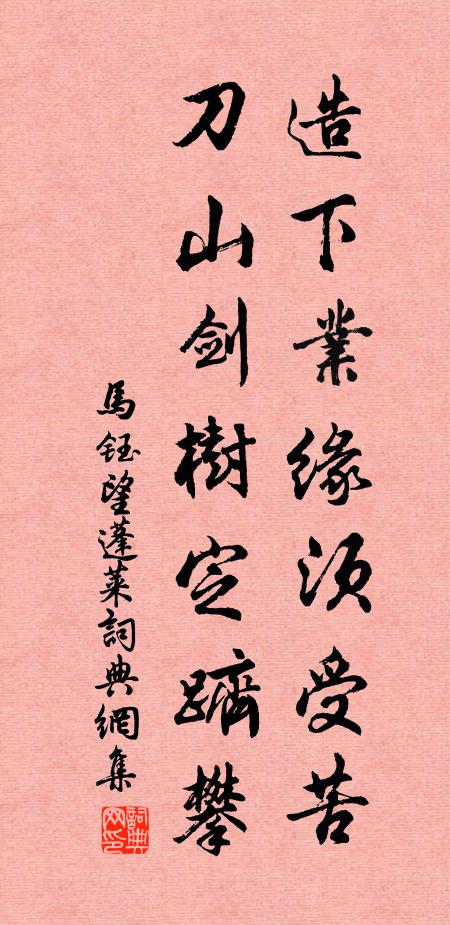 造下業緣須受苦
刀山劍樹定躋攀
馬鈺望蓬萊詞典網集
詞典网印